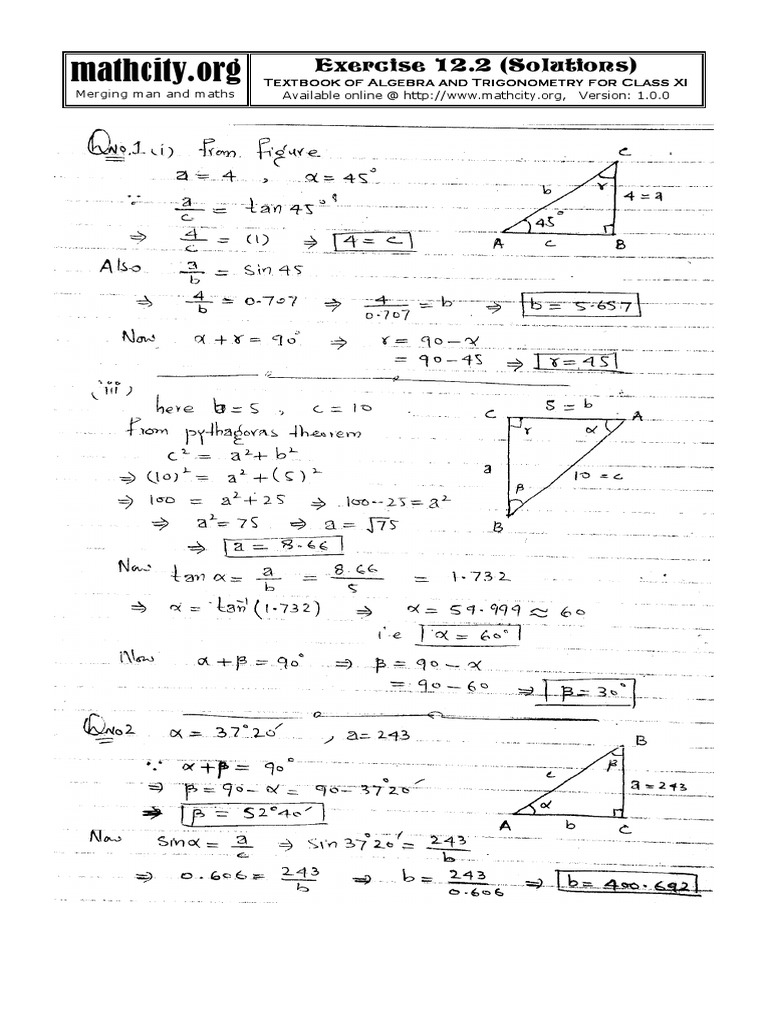 mathcity.org
Merging man and maths
Exercise 12.2 (Solutions)
TEXTBOOK OF ALGEBRA AND TRIGONOMETRY FOR CLASS XI
Available online @ http://www.mathcity.org, Version: 1.0.0
QNo.1 (i) From Figure
a = 4 , α = 45°
∵ a/c = tan 45°
⇒ 4/c = (1) ⇒ 4 = c
C
b
r
4 = a
45°
A c B
Also a/b = sin 45
⇒ 4/b = 0.707 ⇒ 4/0.707 = b ⇒ b = 5.657
Now α + r = 90° ⇒ r = 90 - α
= 90 - 45 ⇒ r = 45
(iii)
here b = 5 , c = 10
From pythagoras theorem
c² = a² + b²
⇒ (10)² = a² + (5)²
⇒ 100 = a² + 25 ⇒ 100 - 25 = a²
⇒ a² = 75 ⇒ a = √75
⇒ a = 8.66
5 = b
C r α A
a
10 = c
β
B
Now tan α = a/b = 8.66/5 = 1.732
⇒ α = tan⁻¹(1.732) ⇒ α = 59.999 ≈ 60
i.e α = 60°
Now α + β = 90° ⇒ β = 90 - α
= 90 - 60 ⇒ β = 30°
QNo2 α = 37°20′ , a = 243
∵ α + β = 90°
⇒ β = 90 - α = 90 - 37°20′
⇒ β = 52°40′
B
β
c
a = 243
α
A b C
Now sin α = a/c ⇒ sin 37°20′ = 243/b
⇒ 0.606 = 243/b ⇒ b = 243/0.606 ⇒ b = 400.692